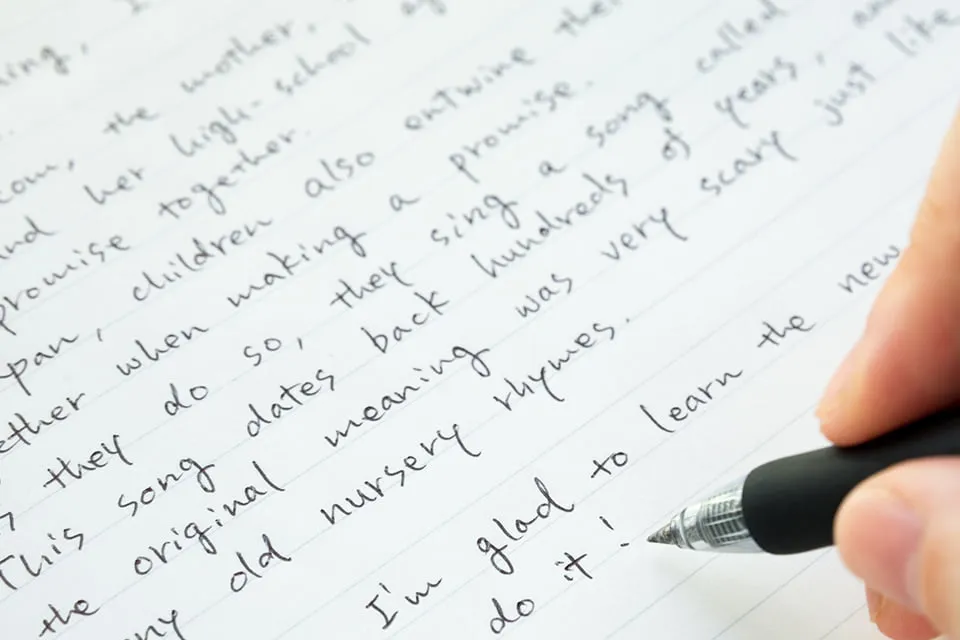 the mother,
her high-school
promise together.
children also entwine
when making a promise.
they do so, they sing a song called
This song dates back hundreds of years,
the original meaning was very scary just like
old nursery rhymes.
I'm glad to learn the new
do it!